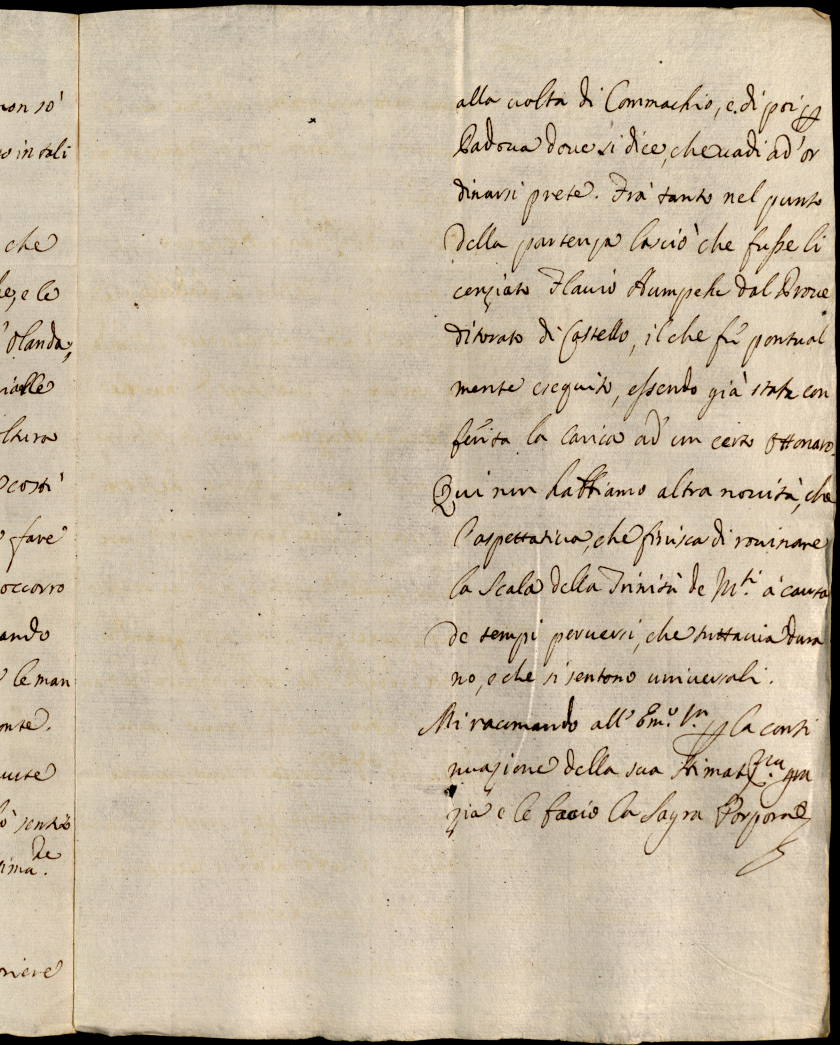 non sò
o in tali
che
he, e le
Olanda,
ialle
ltura
costì
fare
occorro
ando
le man
onte.
sentò
sima.te
riere
alla uolta di Commachio, e di poi p
Padoua doue si dice, che uadi ad' or
dinarsi prete. Frà tanto nel punto
della partenza lasciò che fusse li
cenziato Flauio Humpek dal Proue
ditorato di Castello, il che fù pontual
mente esequito, essendo già stata con
ferita la carica ad' un certo Ottonaro.
Qui non habbiamo altra nouità, che
l'aspettatiua, che finisca di rouinare
la Scala della Trinità de M.ti à causa
de tempi peruersi, che tuttauia dura
no, e che si sentono uniuersali.
Mi racomando all' Em.o V.ra p la conti
nuazione della sua stimat.ma gra
zia e le facio la Sagra Porpora